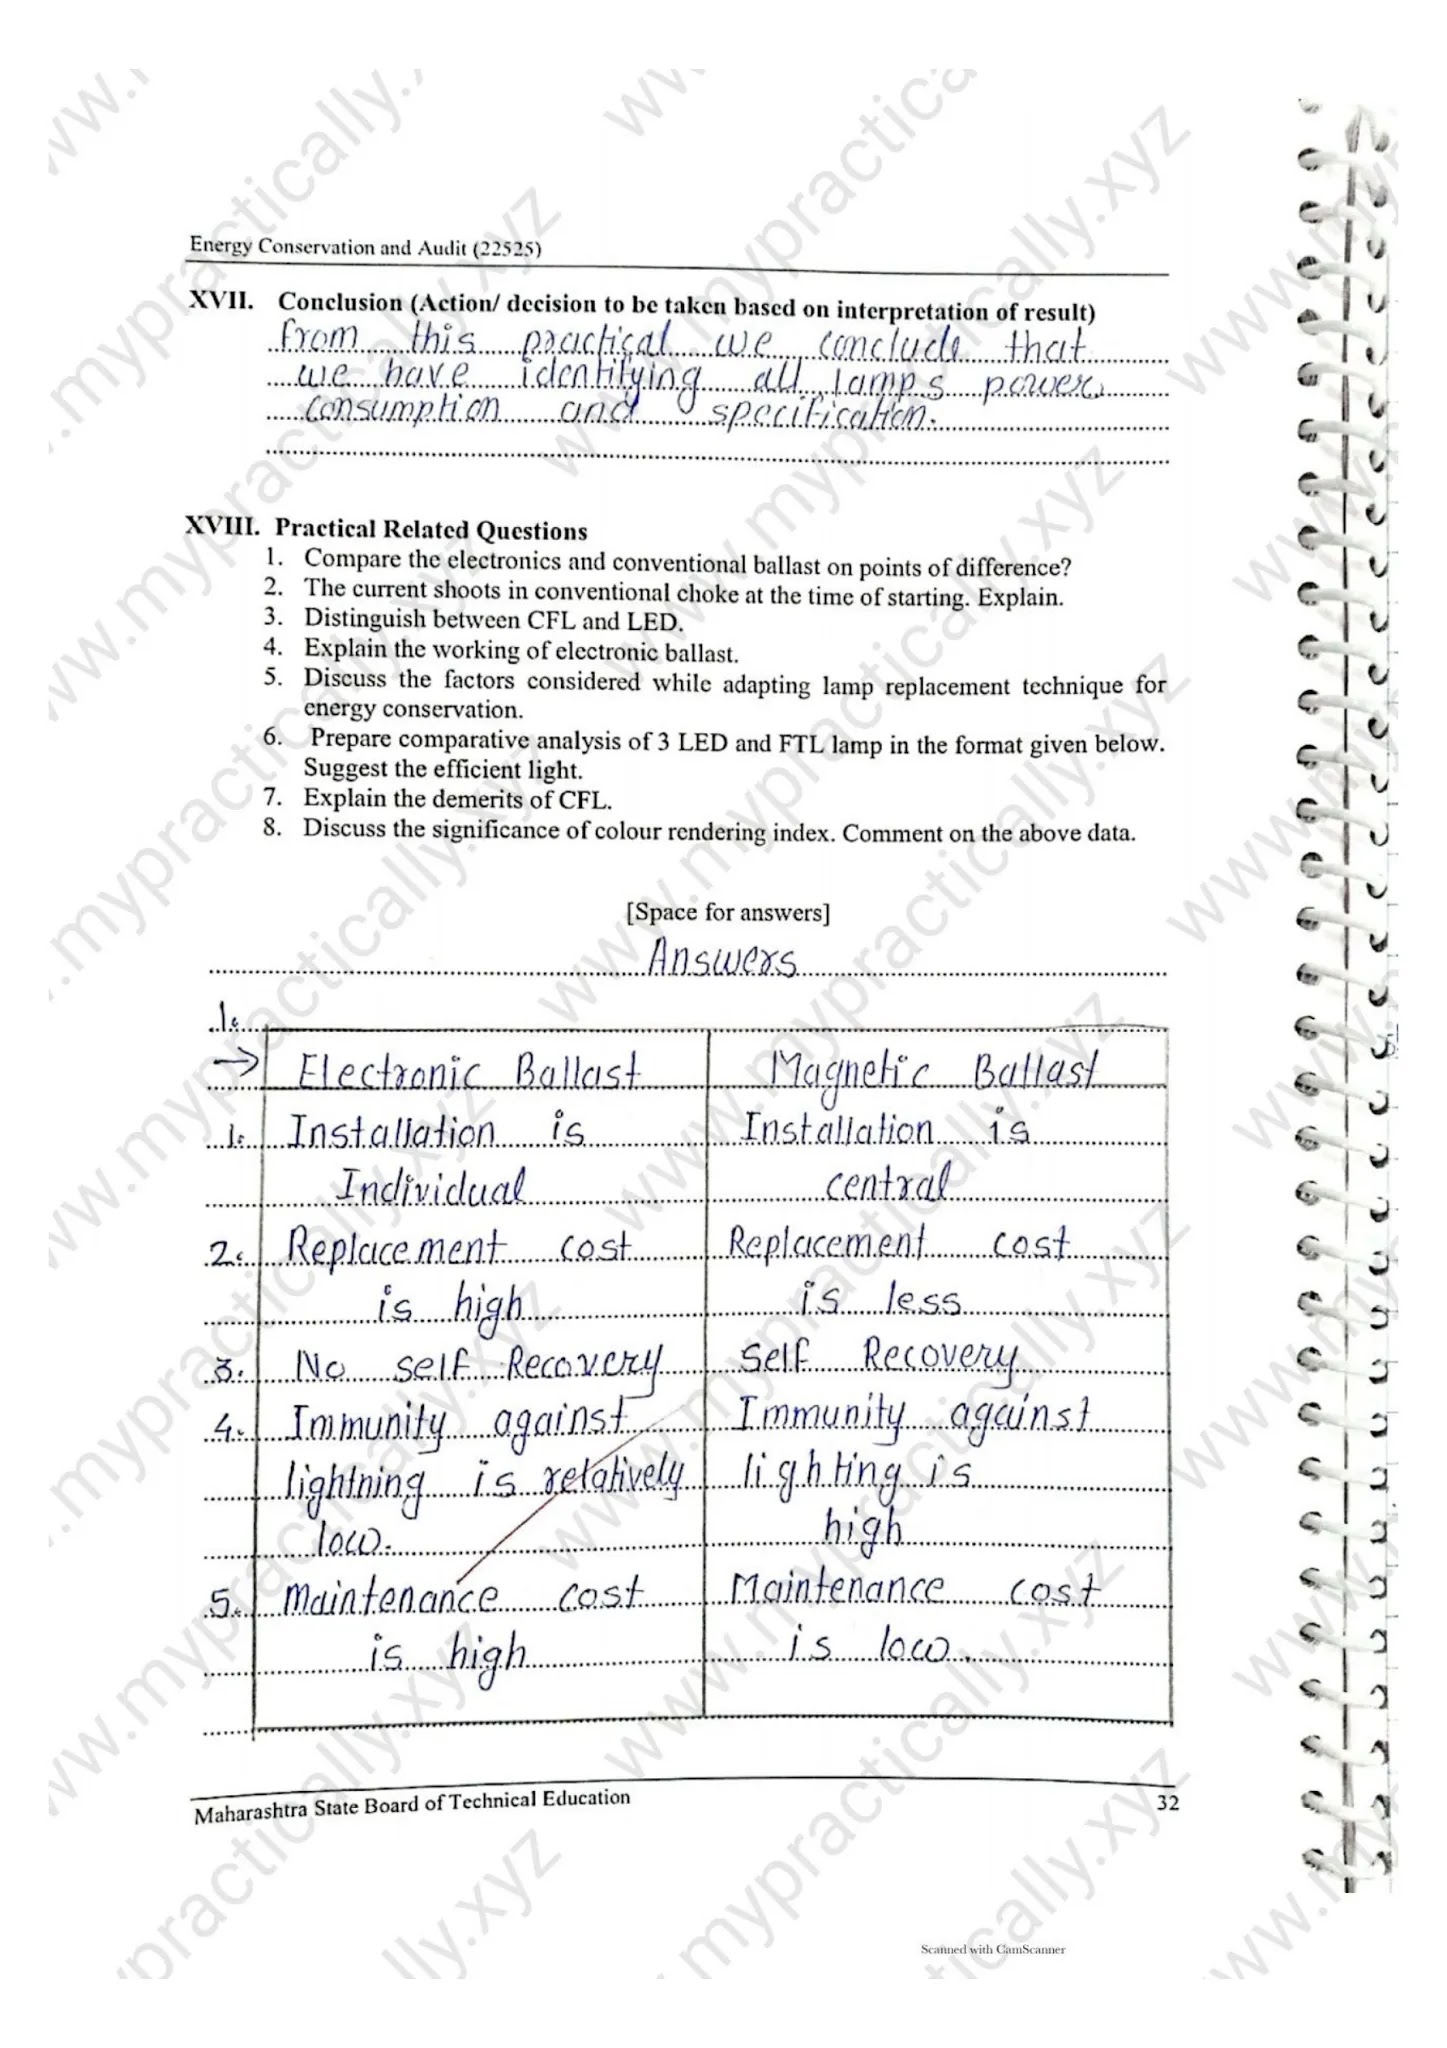 Energy Conservation and Audit (22525)
XVII. Conclusion (Action/ decision to be taken based on interpretation of result)
from this practical we conclude that
we have identifying all lamps power
consumption and specification.
XVIII. Practical Related Questions
1. Compare the electronics and conventional ballast on points of difference?
2. The current shoots in conventional choke at the time of starting. Explain.
3. Distinguish between CFL and LED.
4. Explain the working of electronic ballast.
5. Discuss the factors considered while adapting lamp replacement technique for
energy conservation.
6. Prepare comparative analysis of 3 LED and FTL lamp in the format given below.
Suggest the efficient light.
7. Explain the demerits of CFL.
8. Discuss the significance of colour rendering index. Comment on the above data.
[Space for answers]
Answers
1.
→ Electronic Ballast Magnetic Ballast
1. Installation is Installation is
Individual central
2. Replacement cost Replacement cost
is high is less
3. No self Recovery Self Recovery
4. Immunity against Immunity against
lightning is relatively lighting is
low. high
5. Maintenance cost Maintenance cost
is high is low.
Maharashtra State Board of Technical Education 32
Scanned with CamScanner
www.mypractically.xyz